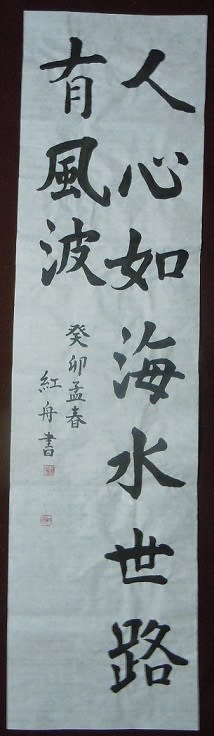 人心如海水世路
有風波
癸卯孟春
紅舟書